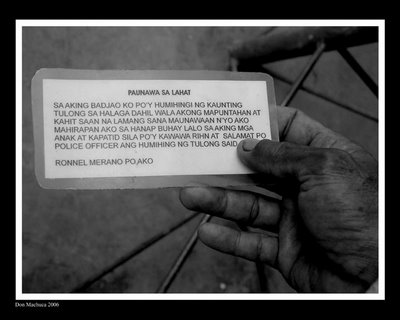 PAUNAWA SA LAHAT
SA AKING BADJAO KO PO'Y HUMIHINGI NG KAUNTING
TULONG SA HALAGA DAHIL WALA AKONG MAPUNTAHAN AT
KAHIT SAAN NA LAMANG SANA MAUNAWAAN N'YO AKO
MAHIRAPAN AKO SA HANAP BUHAY LALO SA AKING MGA
ANAK AT KAPATID SILA PO'Y KAWAWA RIHN AT SALAMAT PO
POLICE OFFICER ANG HUMIHING NG TULONG SAID
RONNEL MERANO PO,AKO
Don Macbuca 2006